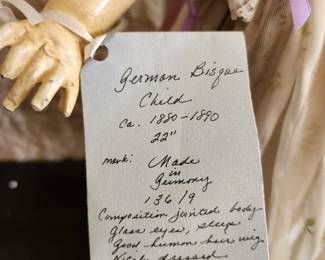 German Bisque
Child
ca. 1880-1890
22"
mark: Made
in
Germany
136/9
Composition jointed body
glass eyes, sleeps
good human hair wig
Nicely dressed